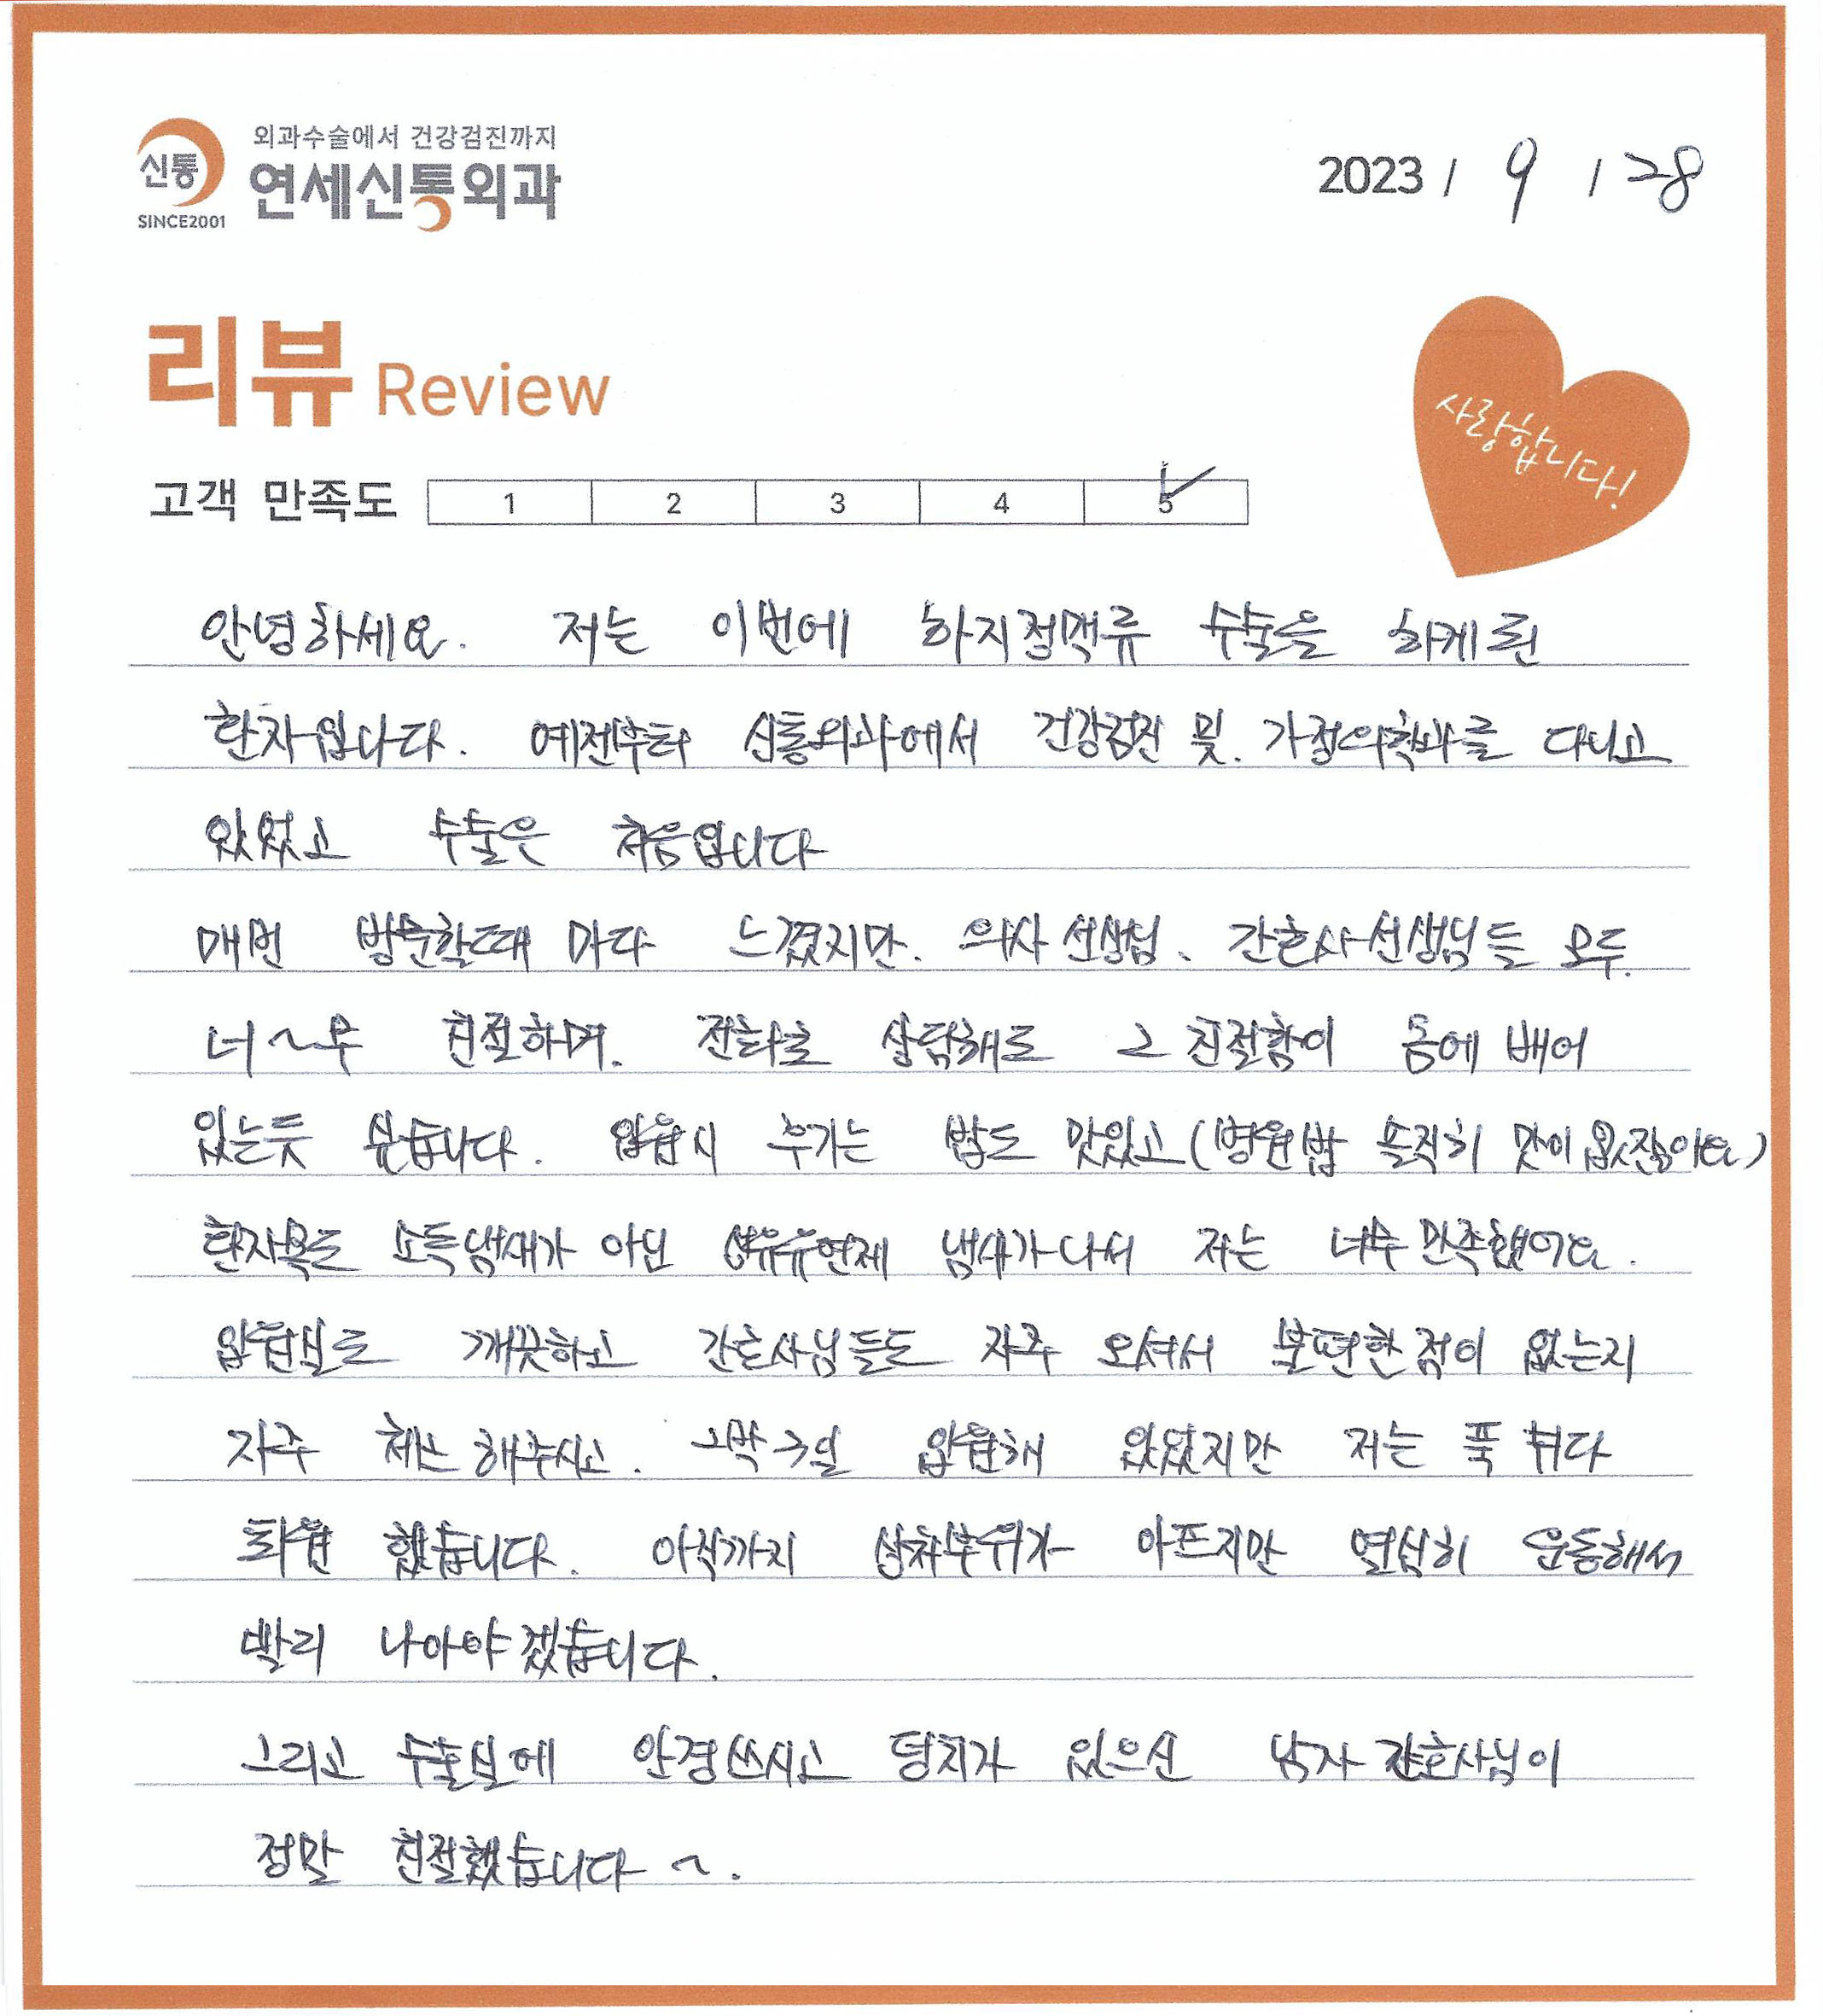 신통
SINCE2001
외과수술에서 건강검진까지
연세신통외과
2023 / 9 / 28
리뷰 Review
사랑합니다!
고객 만족도 1 2 3 4 5
안녕하세요. 저는 이번에 하지정맥류 수술을 하게된
환자입니다. 예전부터 신통외과에서 건강검진 및. 가정의학과를 다니고
있었고 수술은 처음입니다
매번 방문할때 마다 느꼈지만. 의사선생님. 간호사선생님들 모두.
너~무 친절하며. 전화로 상담해도 그 친절함이 몸에 배어
있는듯 싶습니다. 입원시 주가는 밥도 맛있고(병원밥 솔직히 맛이 없잖아요)
환자복도 소독냄새가 아닌 섬유유연제 냄새가나서 저는 너무 만족했어요.
입원실도 깨끗하고 간호사님들도 자주 오셔서 불편한점이 없는지
자주 체크 해주시고. 꼬박 3일 입원해 있었지만 저는 푹 쉬다
퇴원 했습니다. 아직까지 상처부위가 아프지만 열심히 운동해서
빨리 나아야겠습니다.
그리고 수술실에 안경쓰시고 덩치가 있으신 남자 간호사님이
정말 친절했습니다~.